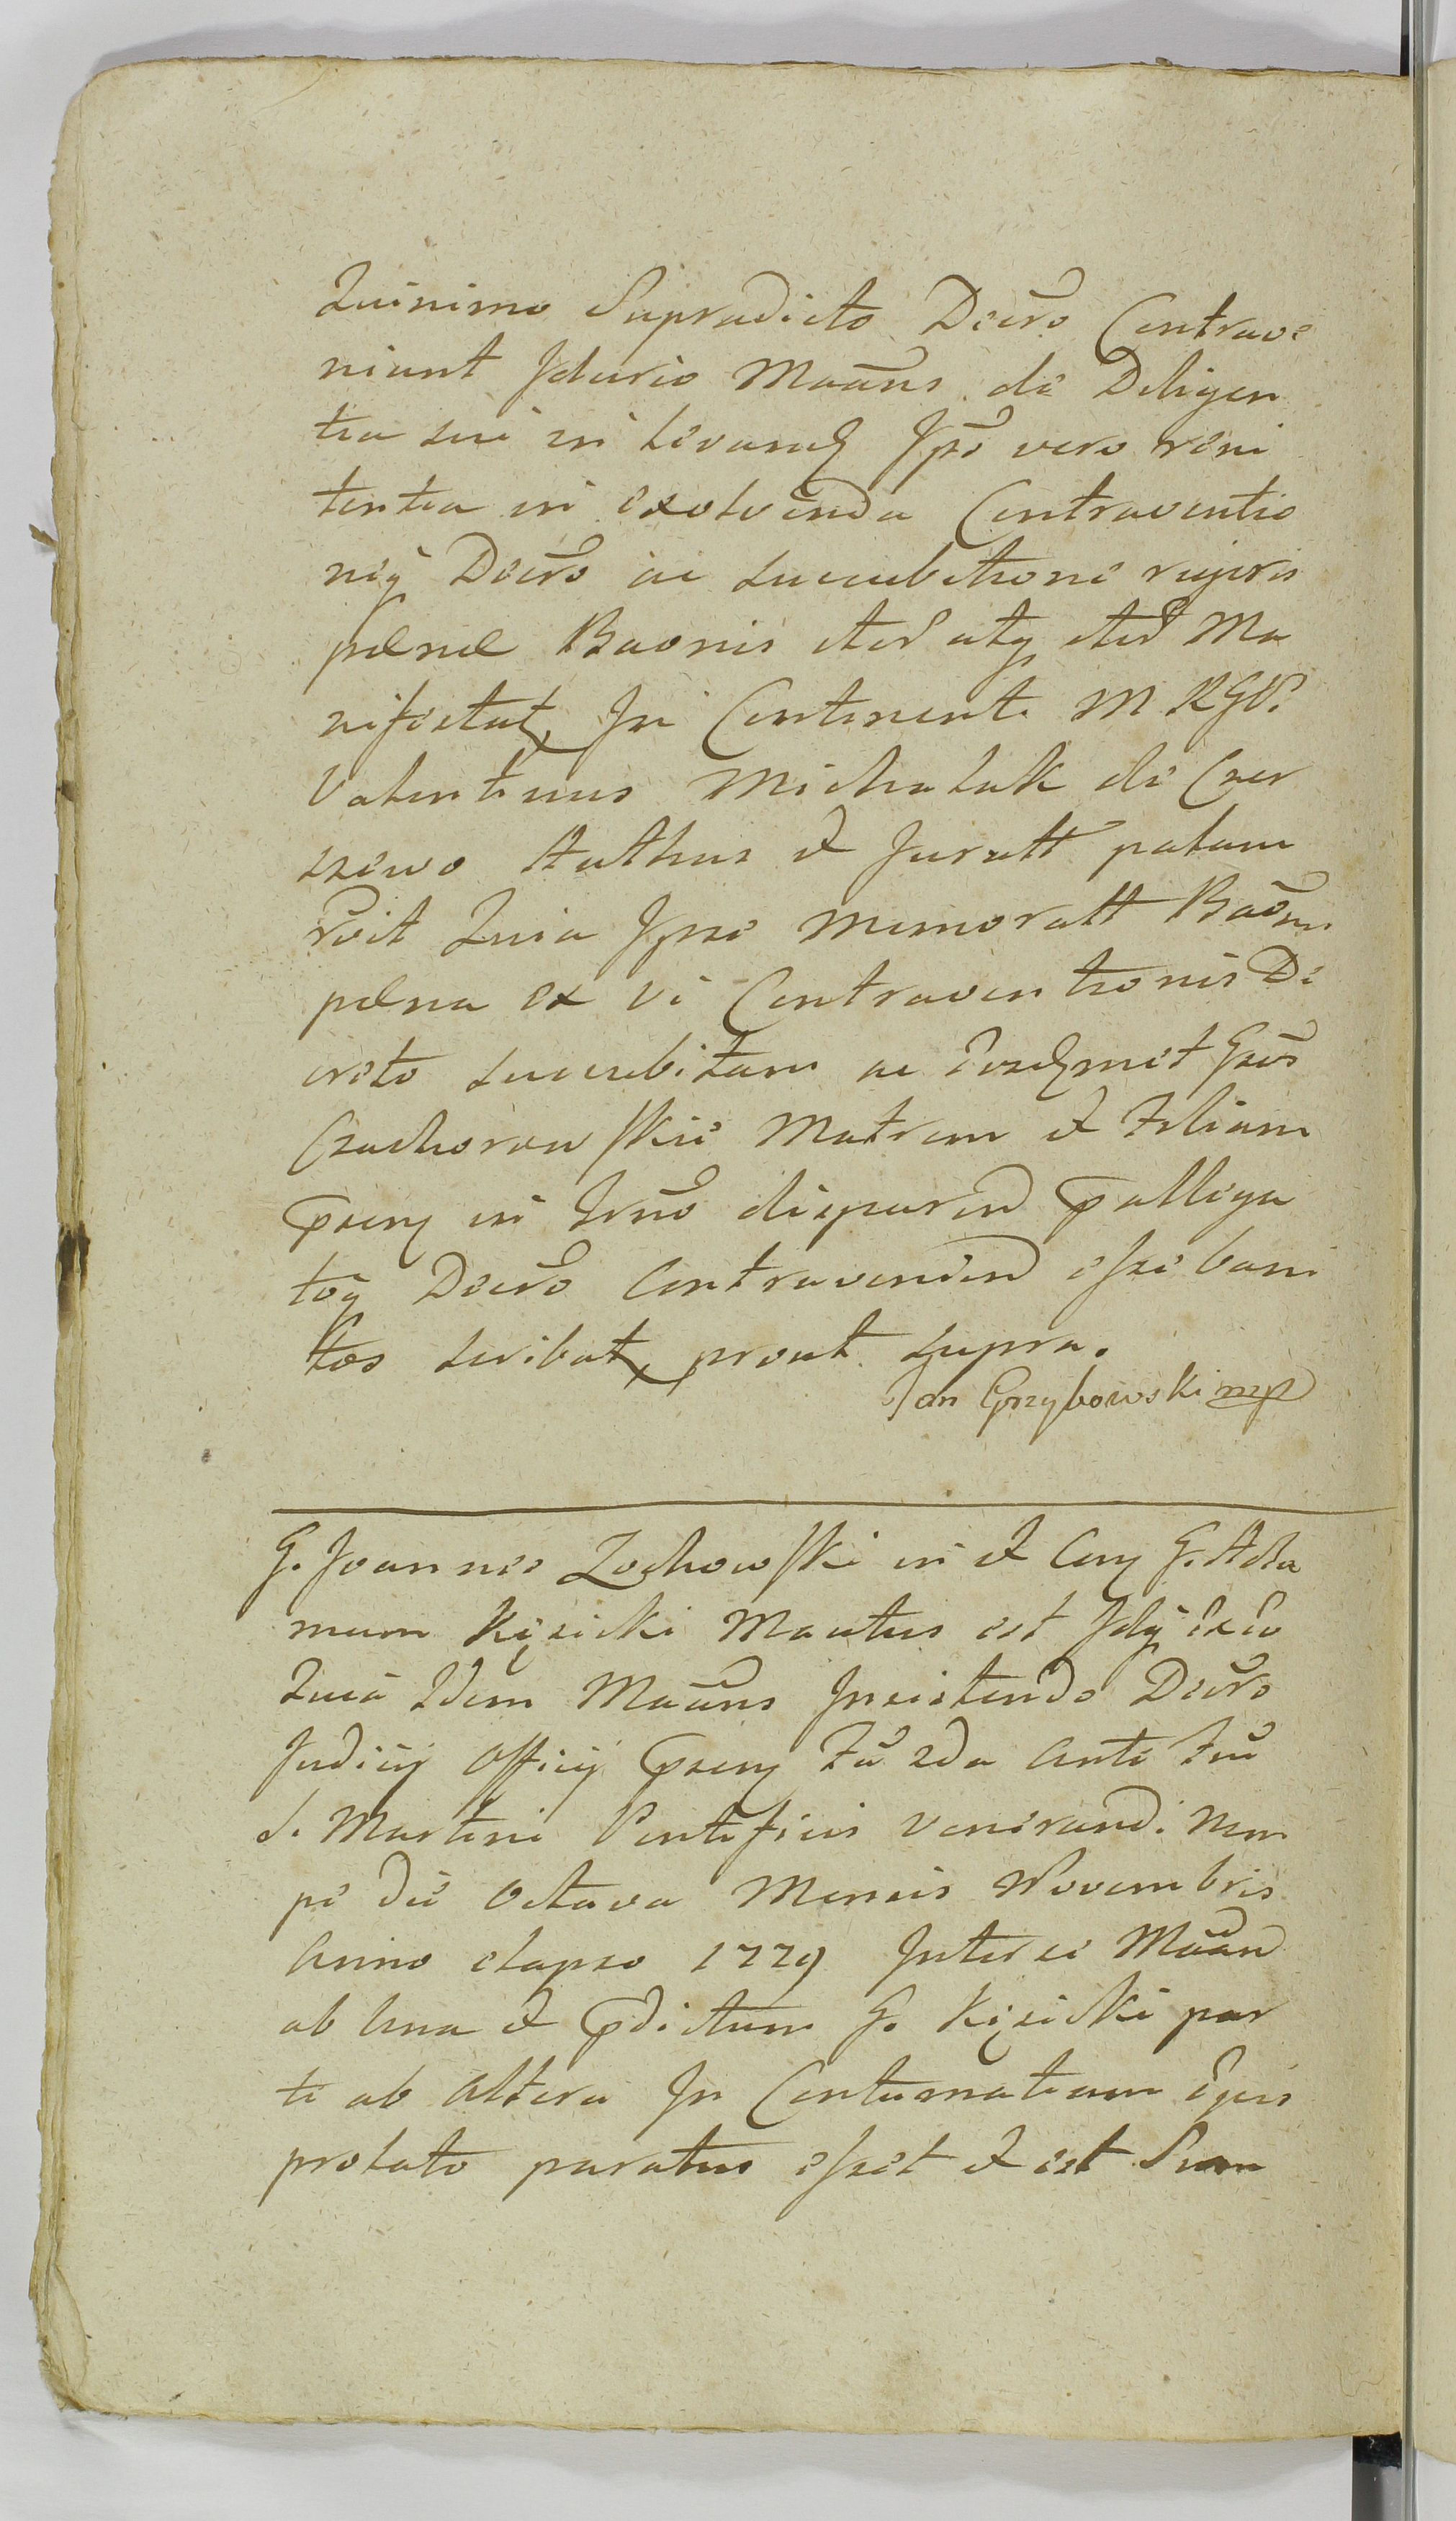 Quinimo Supradicto Decro Contrave
niunt Idcirco Maans de Diligen
tia sui in levand Ipse vero reni
tentia in exolvenda Contraventio
neq Decro ac succubitione rigoris
pænæ Baonis iter atq iter Ma
nifestat, In Continenti M RGD.
Valentinus Michalak de Czer
szewo Authus et Juratt palam
rcit Quia Ipse memoratt Baonem
pæna ex vi Contraventionis De
creto succubitam ac eosdmet Gsos
Czachorowskie Matrem et Filium
Psens in Trno disparend Palliga
toq Decro Contravenend esse bani
tos scribat, prout supra.
Jan Grzybowski mp
G. Joannes Zochowski in et Con G. Ada
mum Kęsicki Maatus est Idq ideo
Quia Idem Maans Insistendo Decro
Judicij Officij Psens Fa 2da Ante Fm
S. Martini Pontificis Venerandi. Nem
pe die Octava Mensis Novembris
Anno elapso 1779 Inter se Maan
ab Una et Pdictum G. Kęsicki par
te ab Altera In Contumatiam Ejus
prolato paratus esset et est Suam